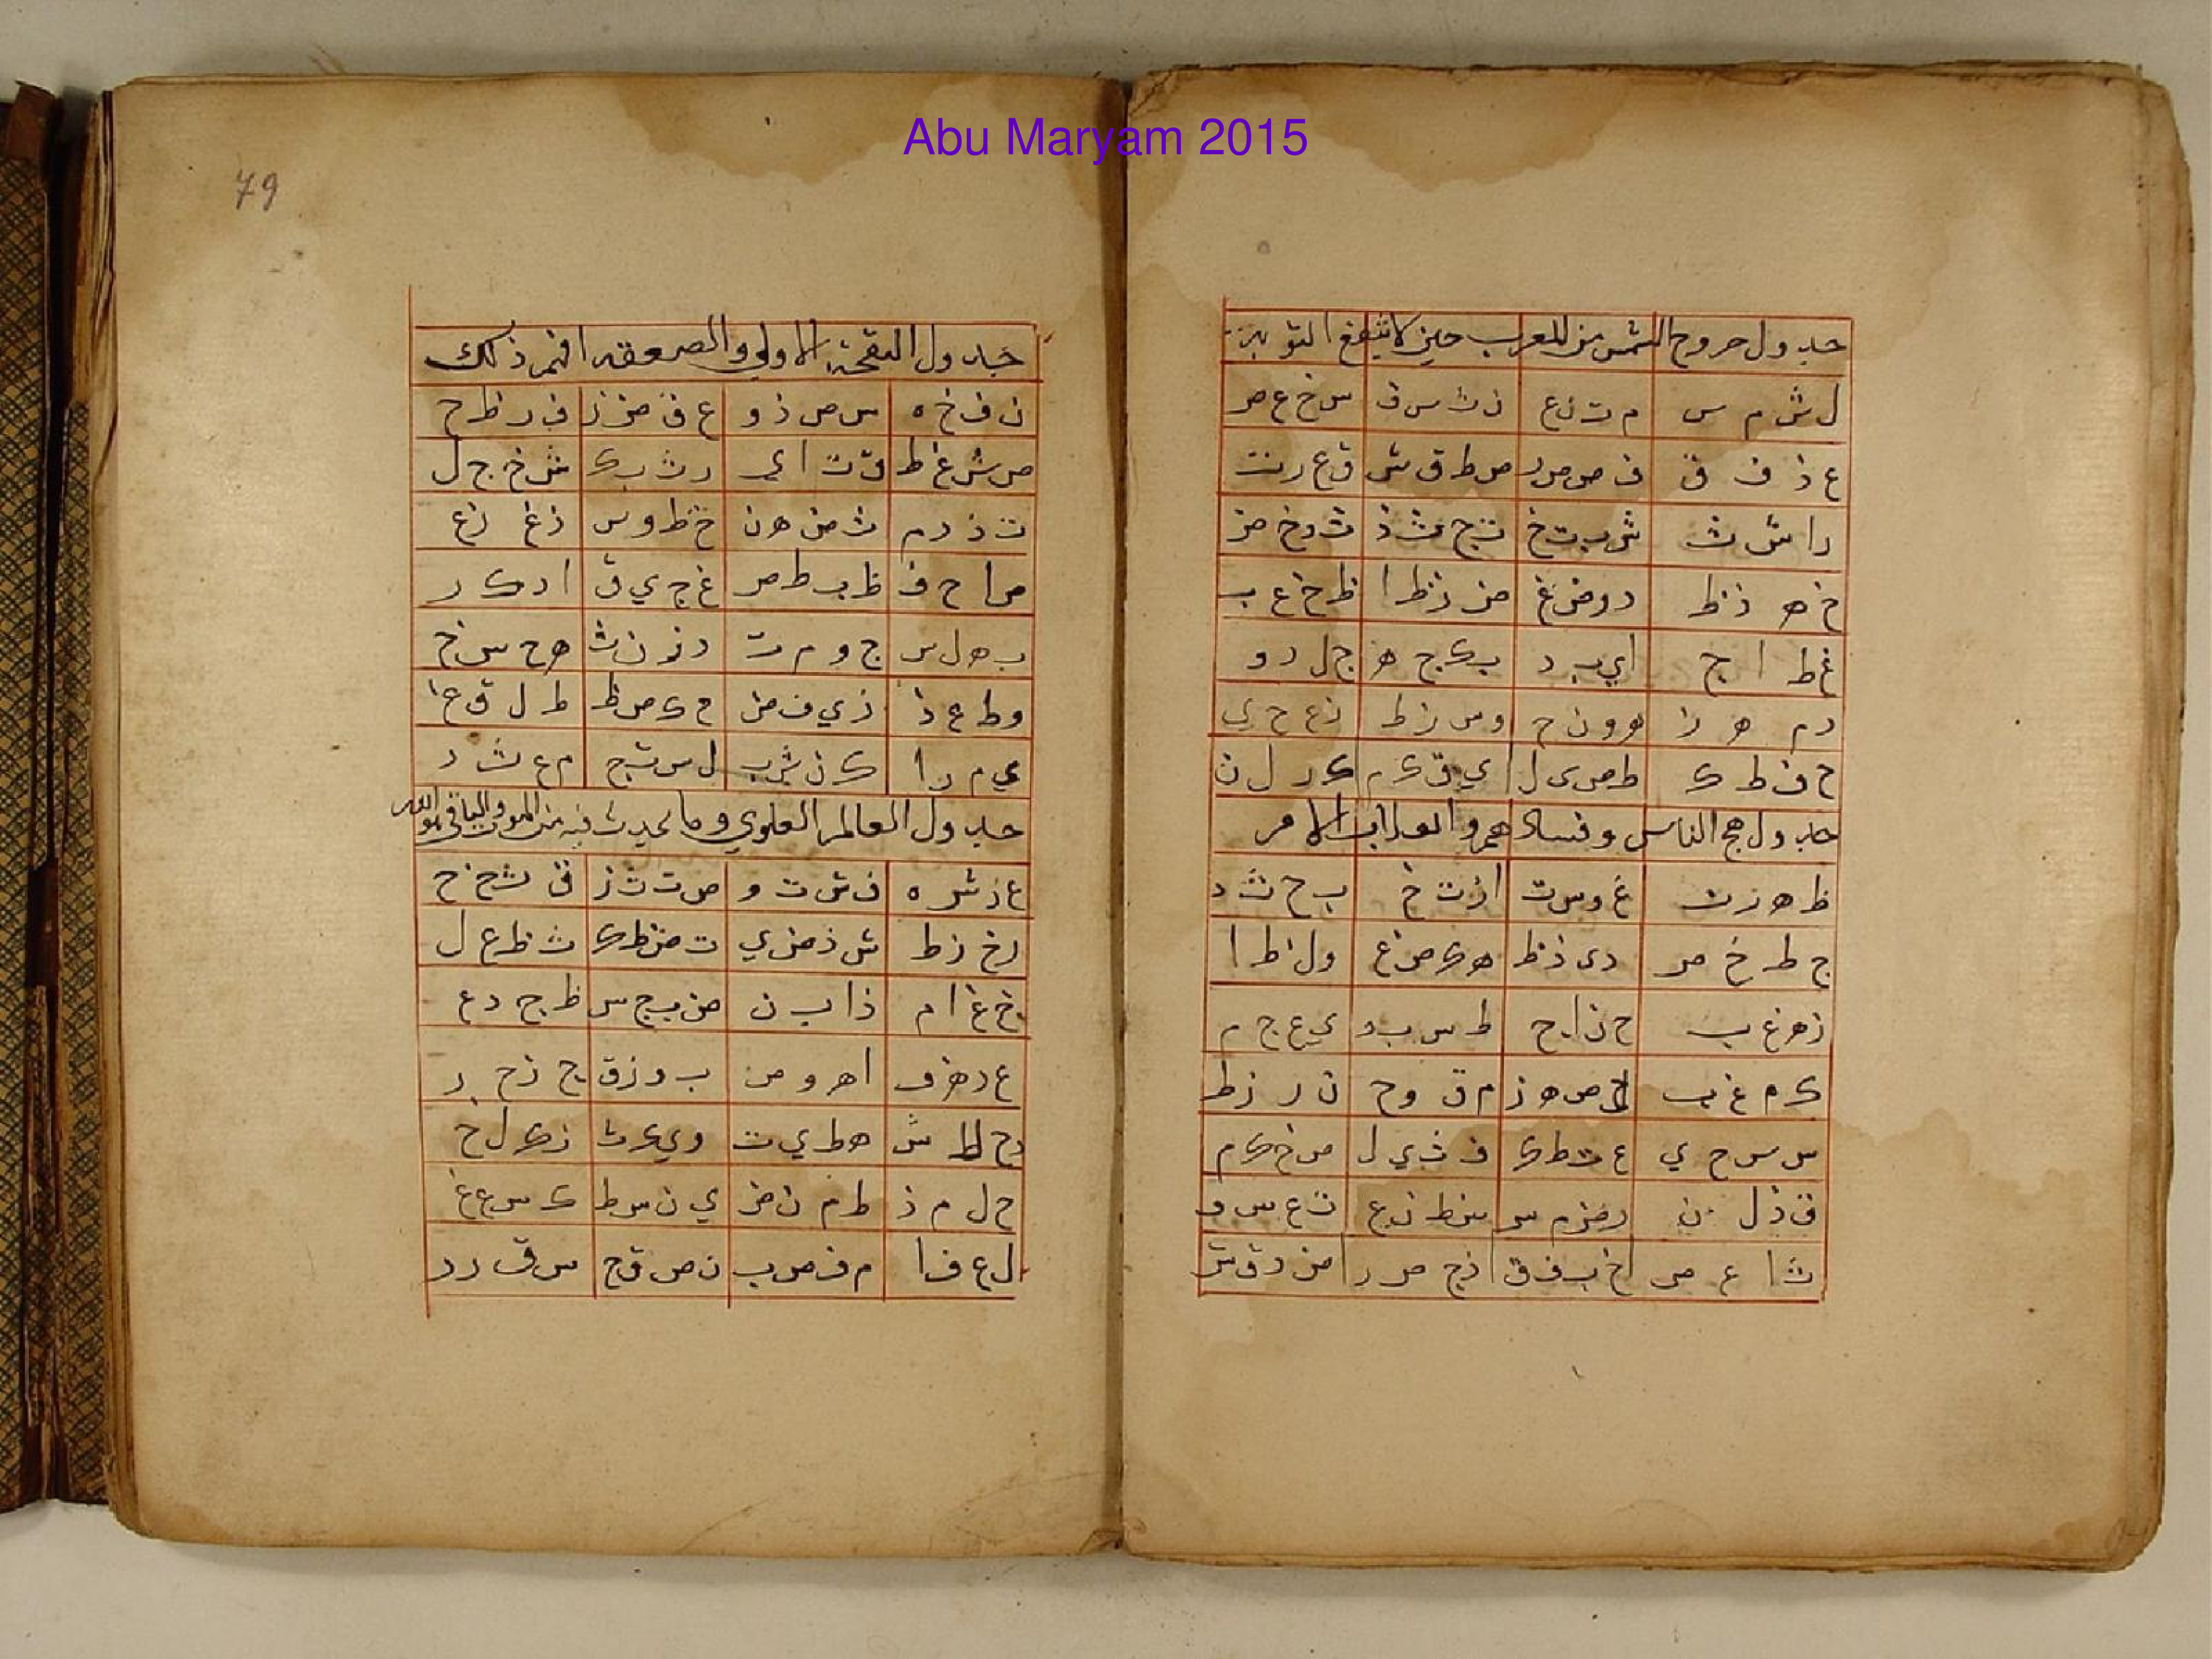 Abu Maryam 2015
جدول خروج الشمس من المغرب حين لا ينفع التوبة
ل ش م س م ت ن ع ن ث س ف س خ ع ص
ع ذ ف ق ف ص ص ر ص ط ق ش ق ع ر ت
ر ا ش ث ش ب ت خ ت ج ث ذ ث د خ ض
خ ه ذ ظ د و ض غ ض ز ظ ا ظ ح غ ب
غ ط ا ج ا ي ب د ب ك ج ه ج ل د و
د م ه ز ه و ن ح و س ز ط ز ع ح ي
ح ف ط ك ط ص ى ل ي ق ك م ك ر ل ن
جدول حج الناس وفسادهم والعذاب الامر
ظ ه ز ت غ و س ت ا ز ت خ ب ح ث د
ج ط خ ص د ى ذ ظ ه ك ض غ و ل ظ ا
ز ه غ ب ح ن ا ح ط س ب د ي ع ج م
ك م غ ب ل ص ه ز م ق و ح ن ر ز ط
س س ح ي ع ت ط ك ف ث ي ل ص خ ك م
ق ذ ل ن ر ض م س س ظ ن ع ت ع س و
ث ا ع ص خ ب ف ق ذ ج ص ر ض د ق ش
79
جدول النفخة الاولى والصعقه افهم ذلك
ن ف خ ه س ص ذ و ع ق ض ز ف ر ظ ح
ص ش غ ط ق ت ا ي ر ث ب ك ش خ ج ل
ت ذ د م ث ض ه ن خ ظ و س ذ غ ز ع
ض ا ح ف ظ ب ط ص غ ج ي ق ا د ك ر
ب ه ل س ج و م ت د ز ن ث ه ح س خ
و ط ع ذ ز ي ف ض ح ك ص ظ ط ل ق غ
ي م ر ا ك ن ش ب ل س ت ج م ع ث د
جدول العالم العلوي وما يحدث فيه من الموت والباقي هو الله
ع ز ش ه ف ش ت و ص ت ث ز ق ث خ ح
ر خ ذ ط ش ذ ض ي ت ض ظ ك ث ظ غ ل
خ غ ا م ذ ا ب ن ض ب ج س ظ ج د ع
غ د ه ف ا ه و ص ب و ز ق ج ز ح ر
د ح ط ش ه ط ي ت و ي ك ث ز ك ل خ
ح ل م ذ ط م ن ض ي ن س ظ ك س ع غ
ل ع ف ا م ف ص ب ن ص ق ج س ق ر د